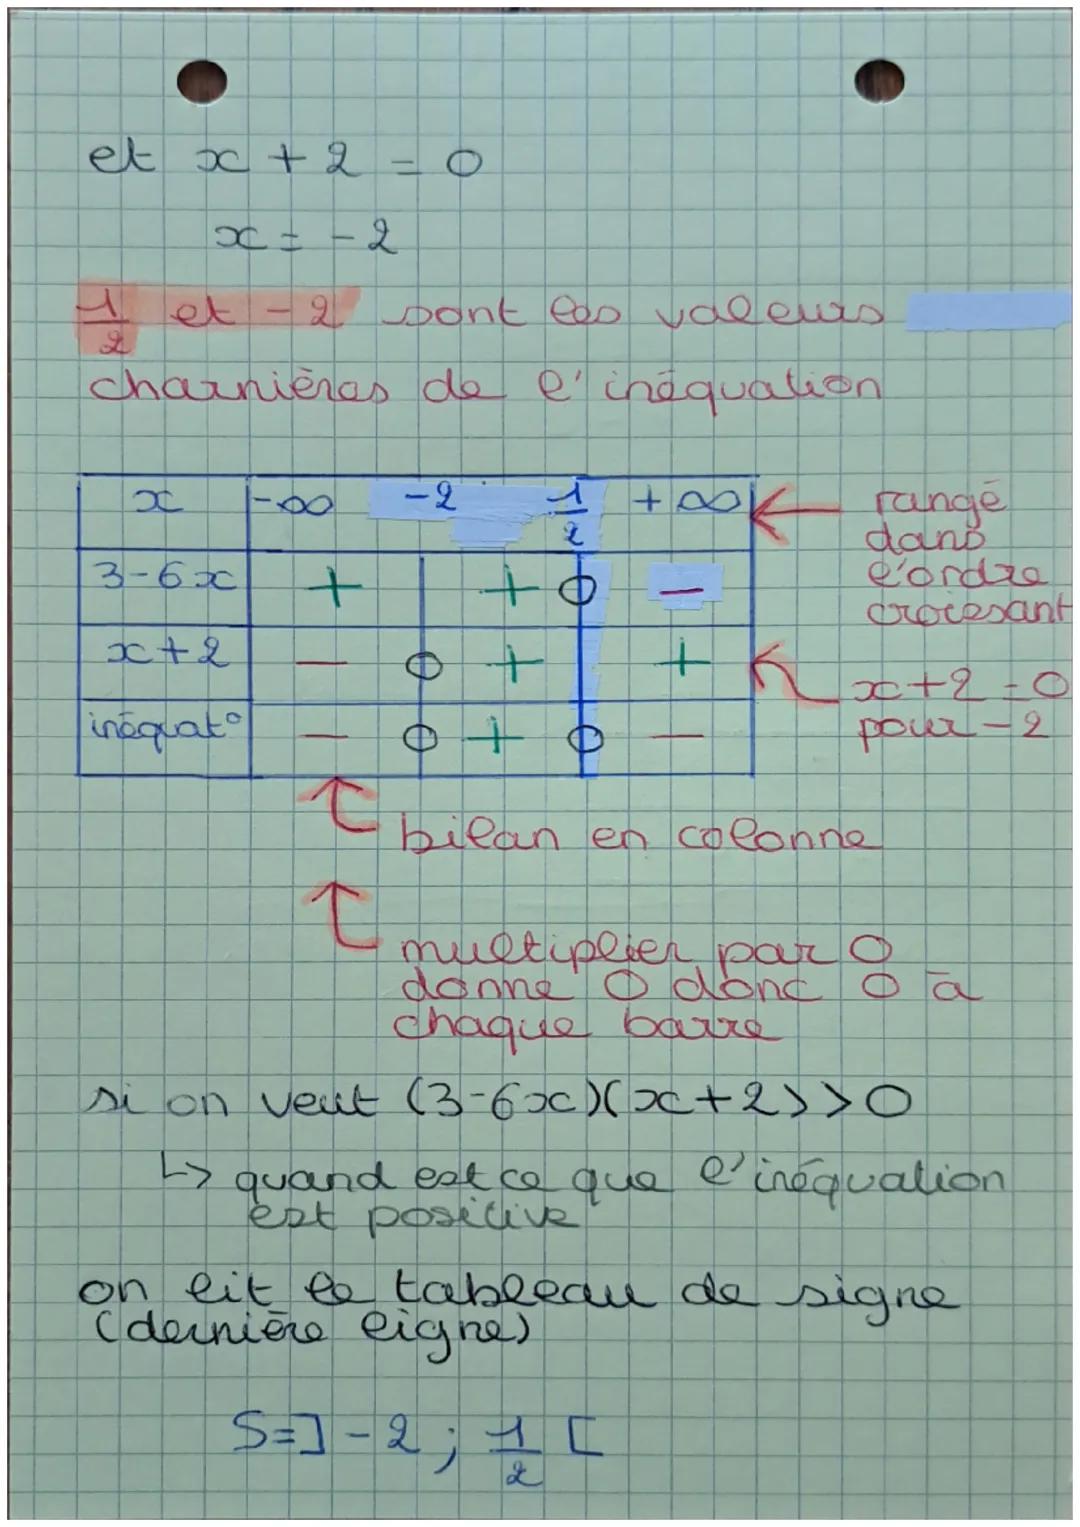 et x + 2 = 0
x = -2
1/2 et -2 sont les valeurs
charnières de l'inéquation
x -∞ -2 1/2 +∞
rangé
dans
l'ordre
croissant
3-6x + + 0 -
x+2 - 0 + +
x+2=0
pour -2
inéquat° - 0 + 0 -
bilan en colonne
multiplier par 0
donne 0 donc 0 à
chaque barre
si on veut (3-6x)(x+2)>0
↳ quand est ce que l'inéquation
est positive
on lit le tableau de signe
(dernière ligne)
S=]-2; 1/2 [